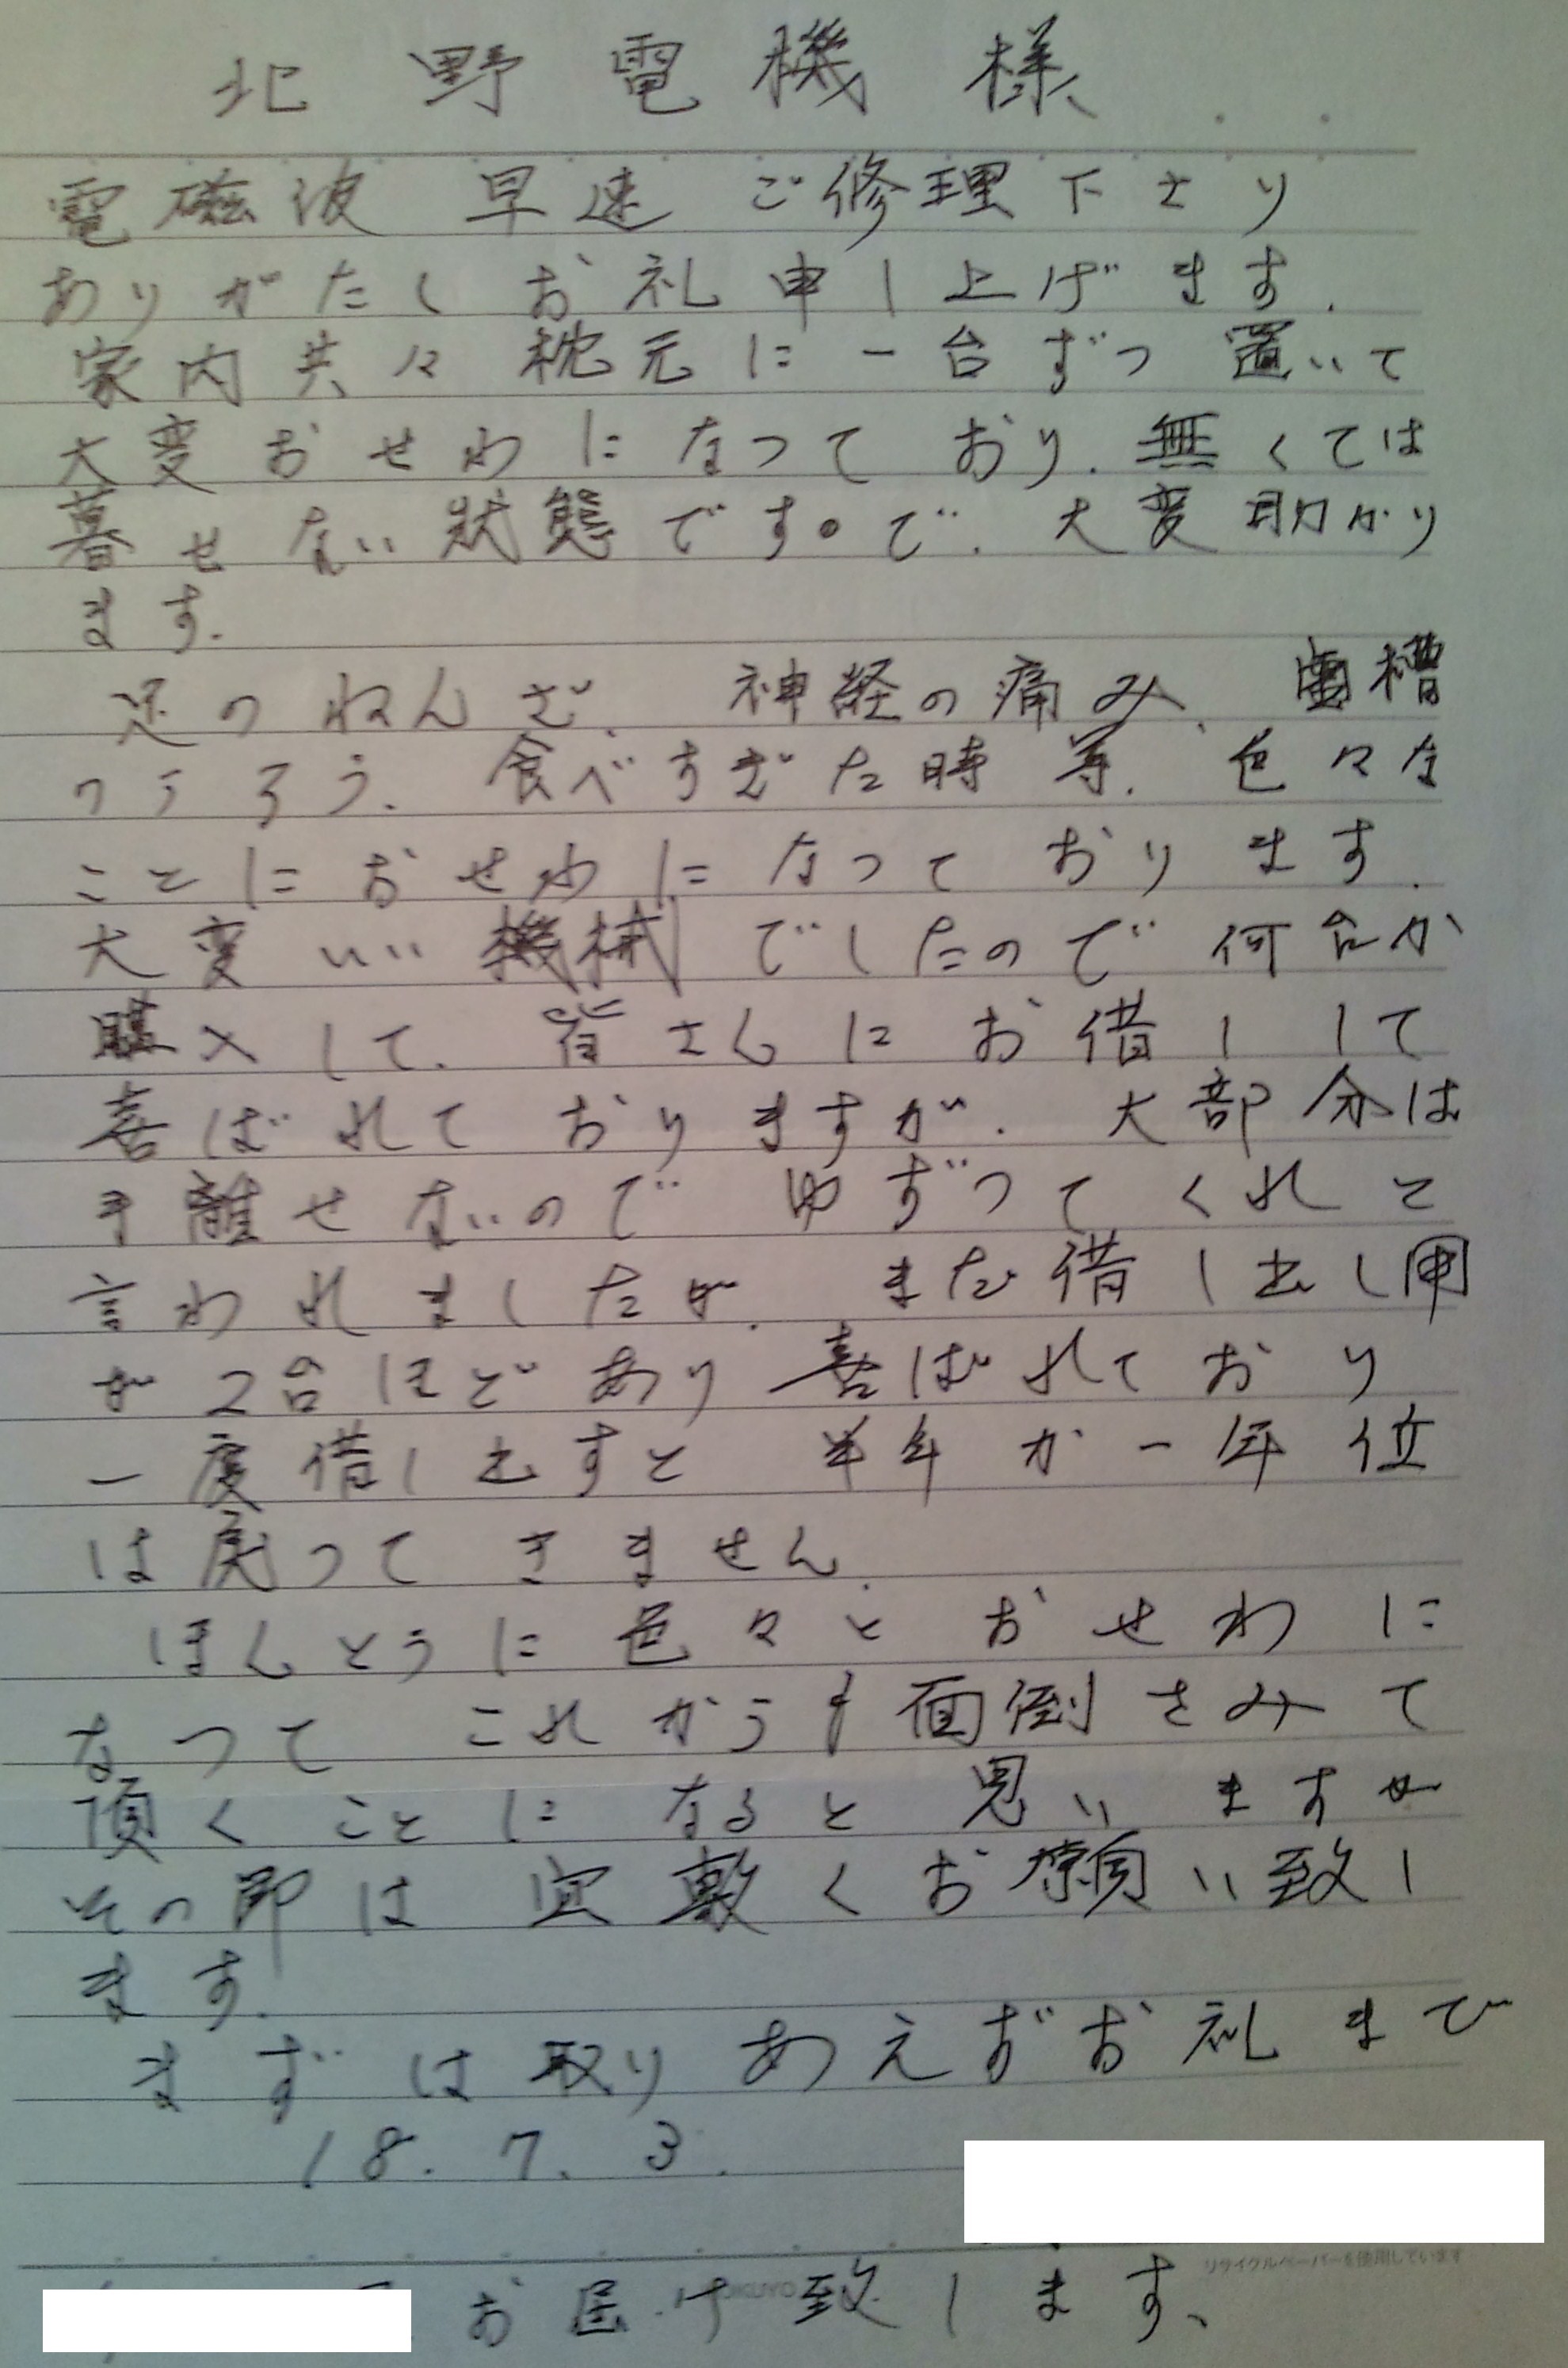 北野電機様
電磁波 早速 ご修理下さり
ありがたくお礼申し上げます.
家内共々枕元に一台ずつ置いて
大変おせわになっており.無くては
暮せない状態です。で.大変助かり
ます.
足のねんざ、神経の痛み、歯槽
のうろう.食べすぎた時等.色々な
ことにおせわになっております.
大変いい機械でしたので何台か
購入して.皆さんにお借しして
喜ばれておりますが.大部分は
手離せないのでゆずってくれと
言われましたが.まだ借し出し用
が2台ほどあり喜ばれており
一度借し出すと 半年か一年位
は戻ってきません.
ほんとうに色々とおせわに
なって これからも面倒さみて
頂くことになると思いますが
その節は宜敷くお願い致し
ます.
まずは取りあえずお礼まで
18.7.3.
リサイクルペーパーを使用しています
KOKUYO
お届け致します、